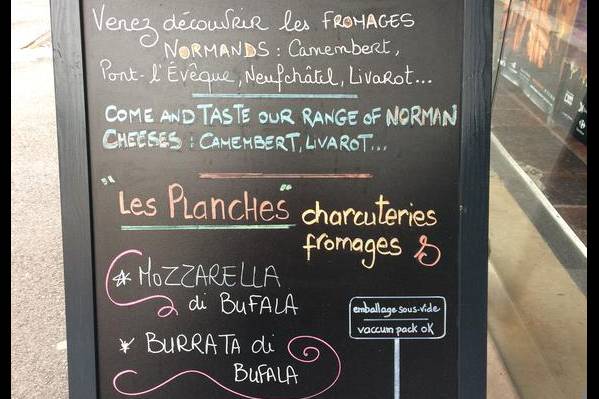 Venez découvrir les FROMAGES
NORMANDS : Camembert,
Pont-l'Évêque, Neufchâtel, Livarot...
COME AND TASTE OUR RANGE OF NORMAN
CHEESES : CAMEMBERT, LIVAROT...
"Les Planches" charcuteries
fromages
* MOZZARELLA
di BUFALA
* BURRATA di
BUFALA
emballage sous-vide
vaccum pack OK